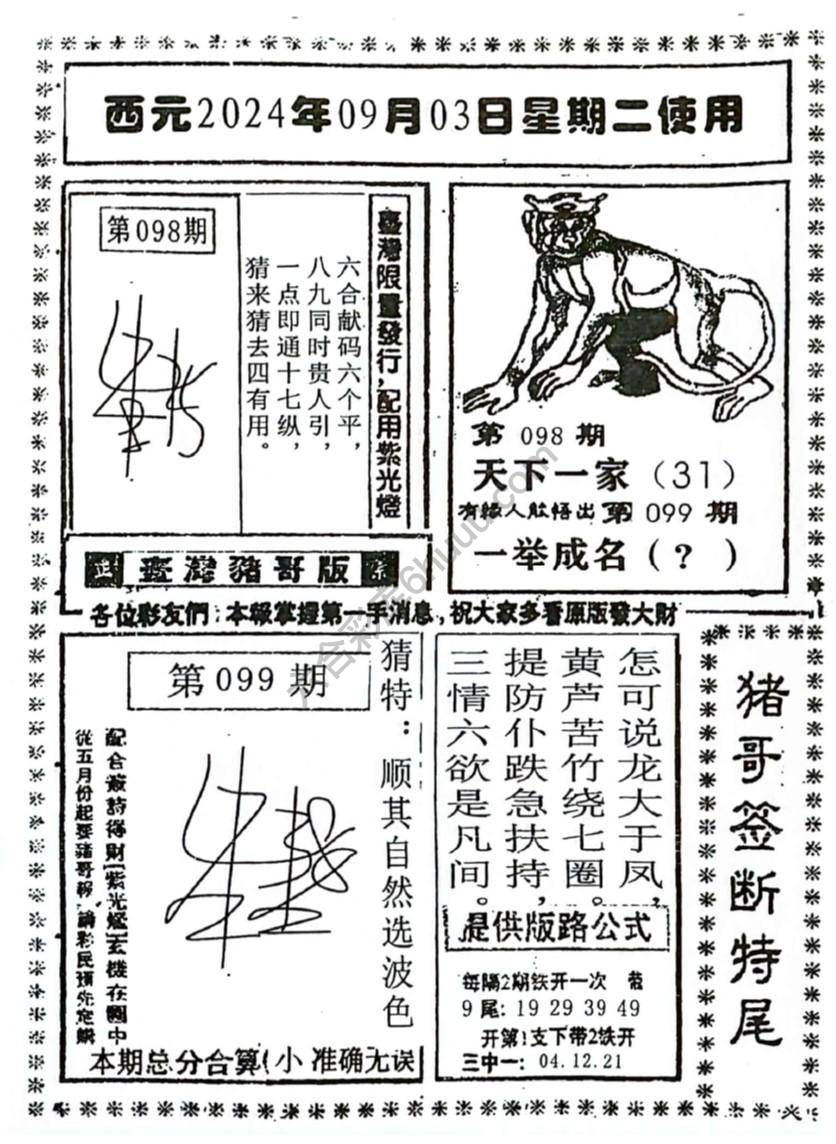 西元2024年09月03日星期二使用
第098期
六合献码六个平，
八九同时贵人引，
一点即通十七纵，
猜来猜去四有用。
臺灣限量發行，配用紫光燈
第 098 期
天下一家（31）
有缘人能悟出 第 099 期
一举成名（？）
臺灣豬哥版
各位彩友們：本報掌握第一手消息，祝大家多看原版發大財
第099期
猜特：顺其自然选波色
配合籤詩得財［紫光燈］玄機在圖中
從五月份起要豬哥報，請彩民預先定購
本期总分合算（小 准确无误
怎可说龙大于凤，
黄芦苦竹绕七圈。
提防仆跌急扶持，
三情六欲是凡间。
提供版路公式
每隔2期铁开一次
9尾：19 29 39 49
开第1支下带2铁开
三中一：04.12.21
猪哥签断特尾
六合彩库6huuu.com